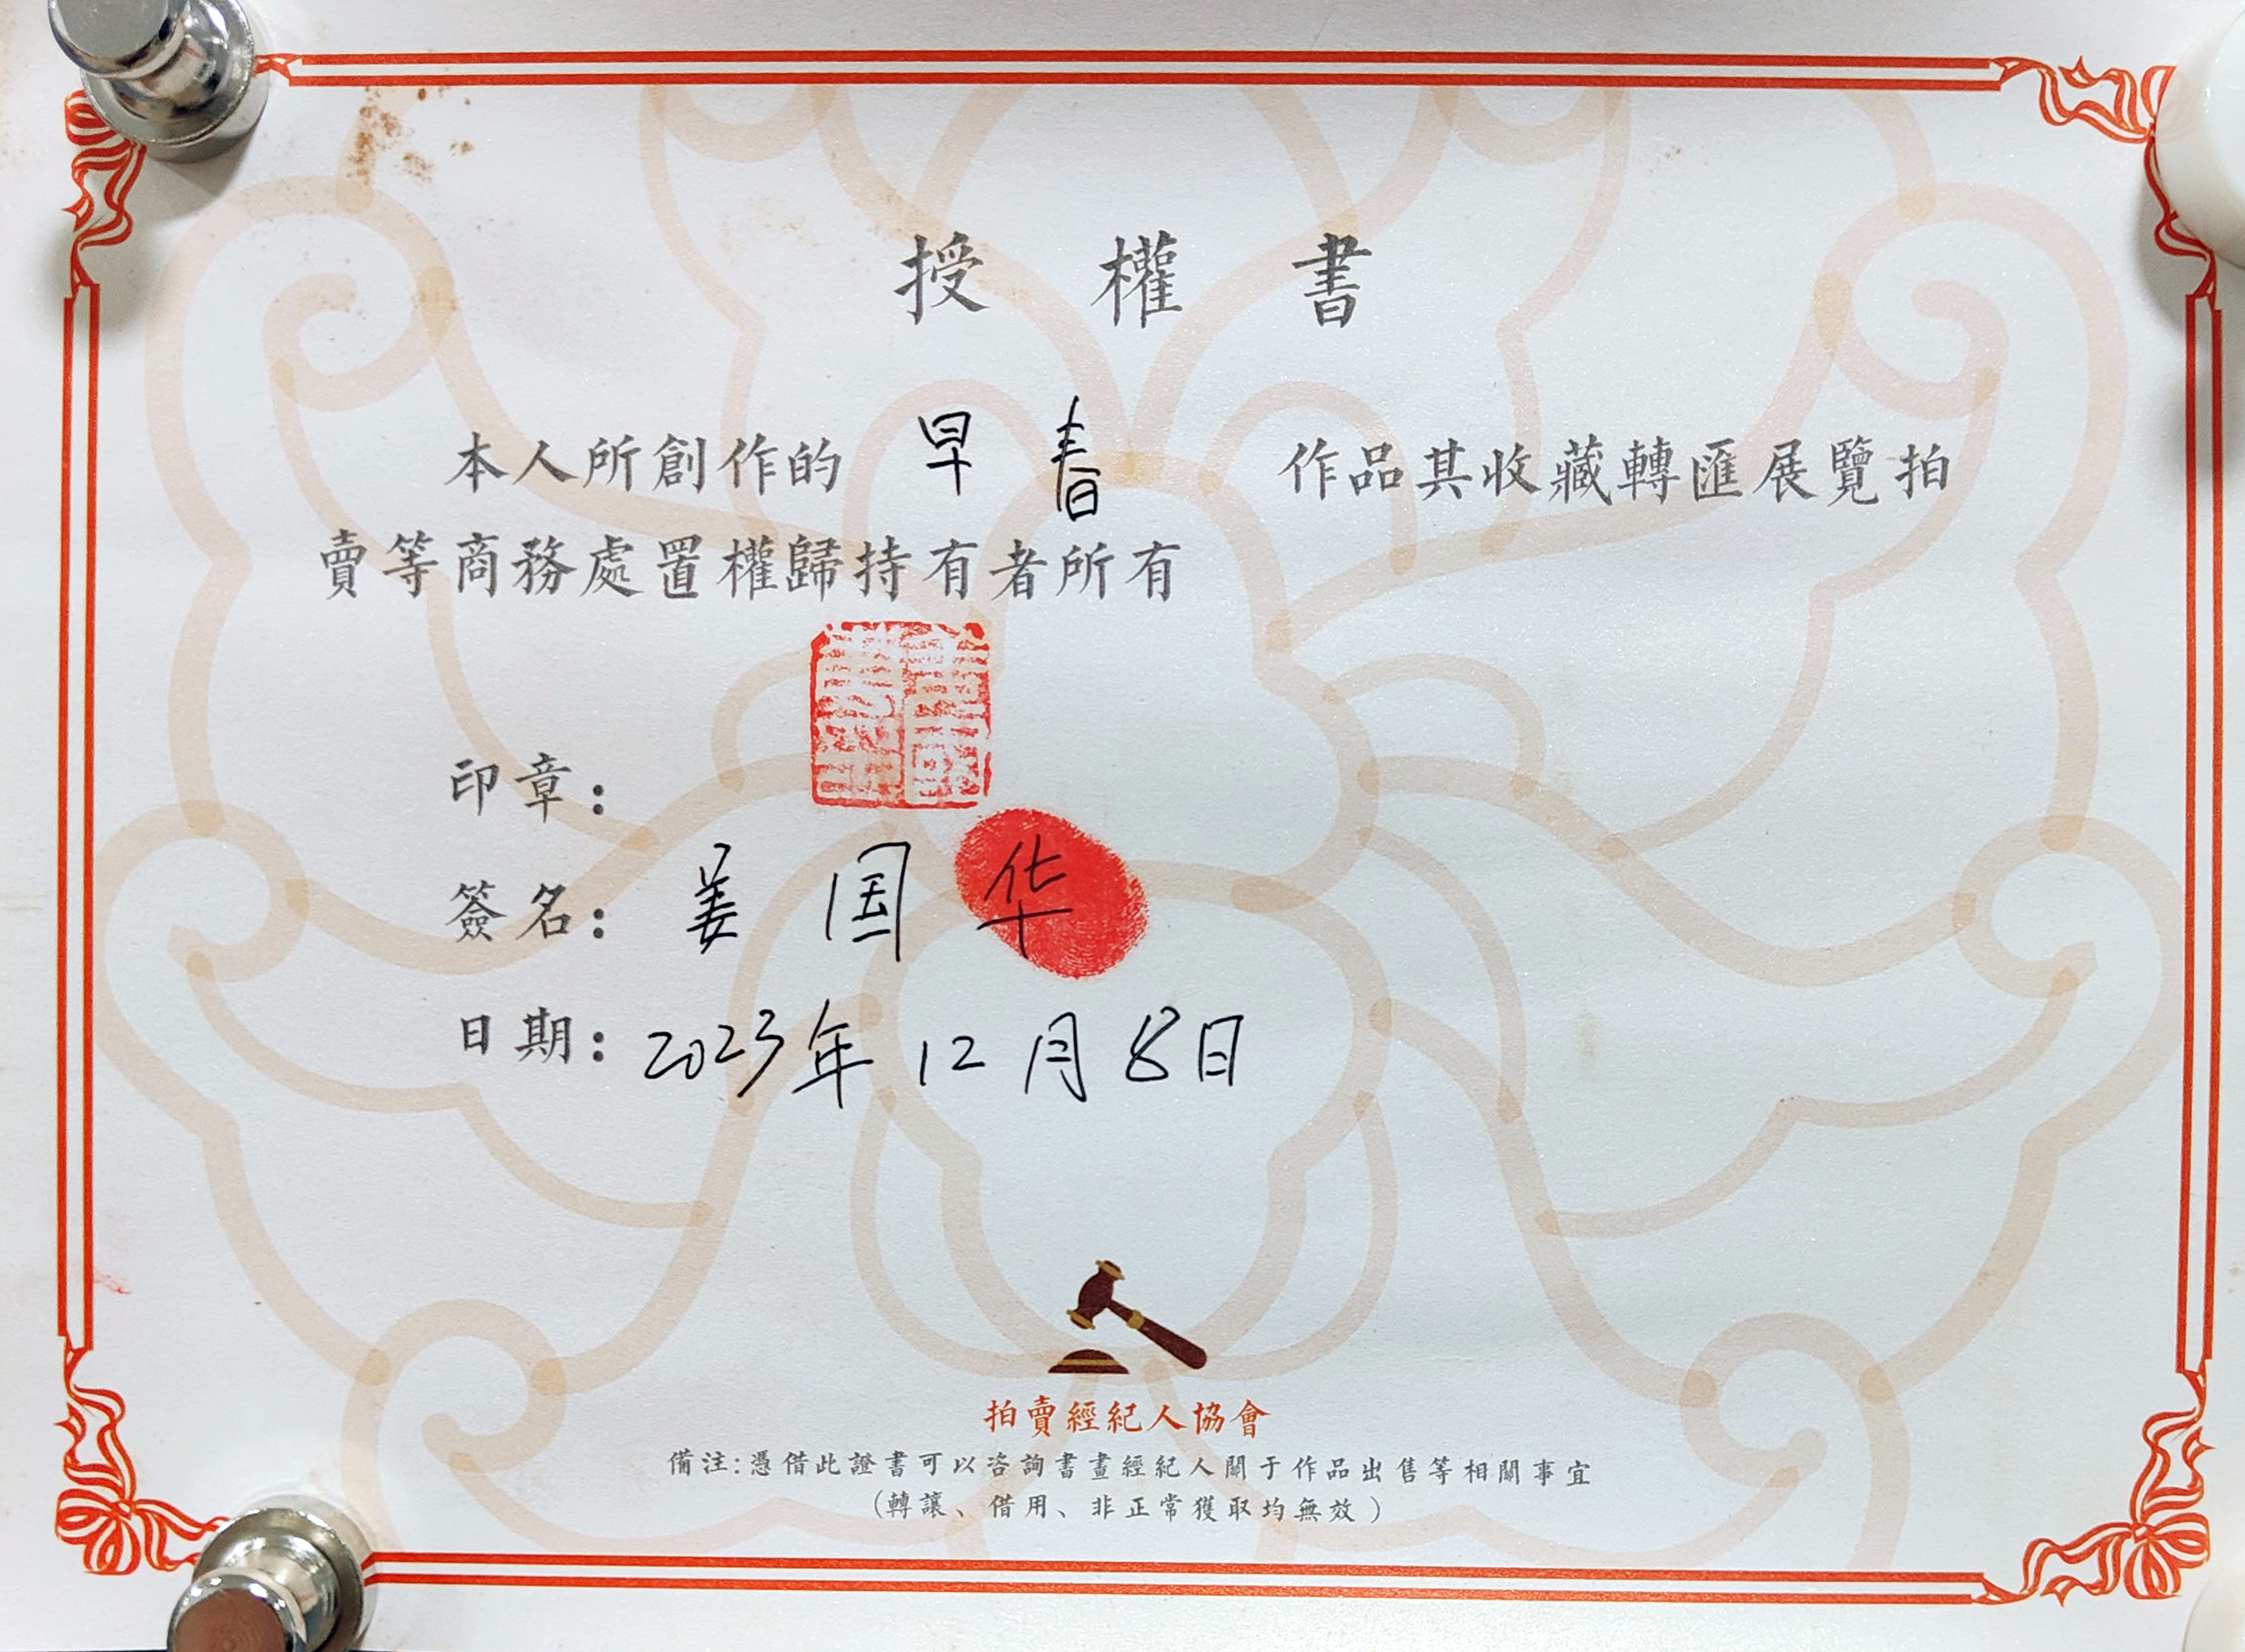 授權書
本人所創作的 早春 作品其收藏轉匯展覽拍
賣等商務處置權歸持有者所有
印章：
簽名：姜国华
日期：2023年12月8日
拍賣經紀人協會
備注:憑借此證書可以咨詢書畫經紀人關于作品出售等相關事宜
(轉讓、借用、非正常獲取均無效)